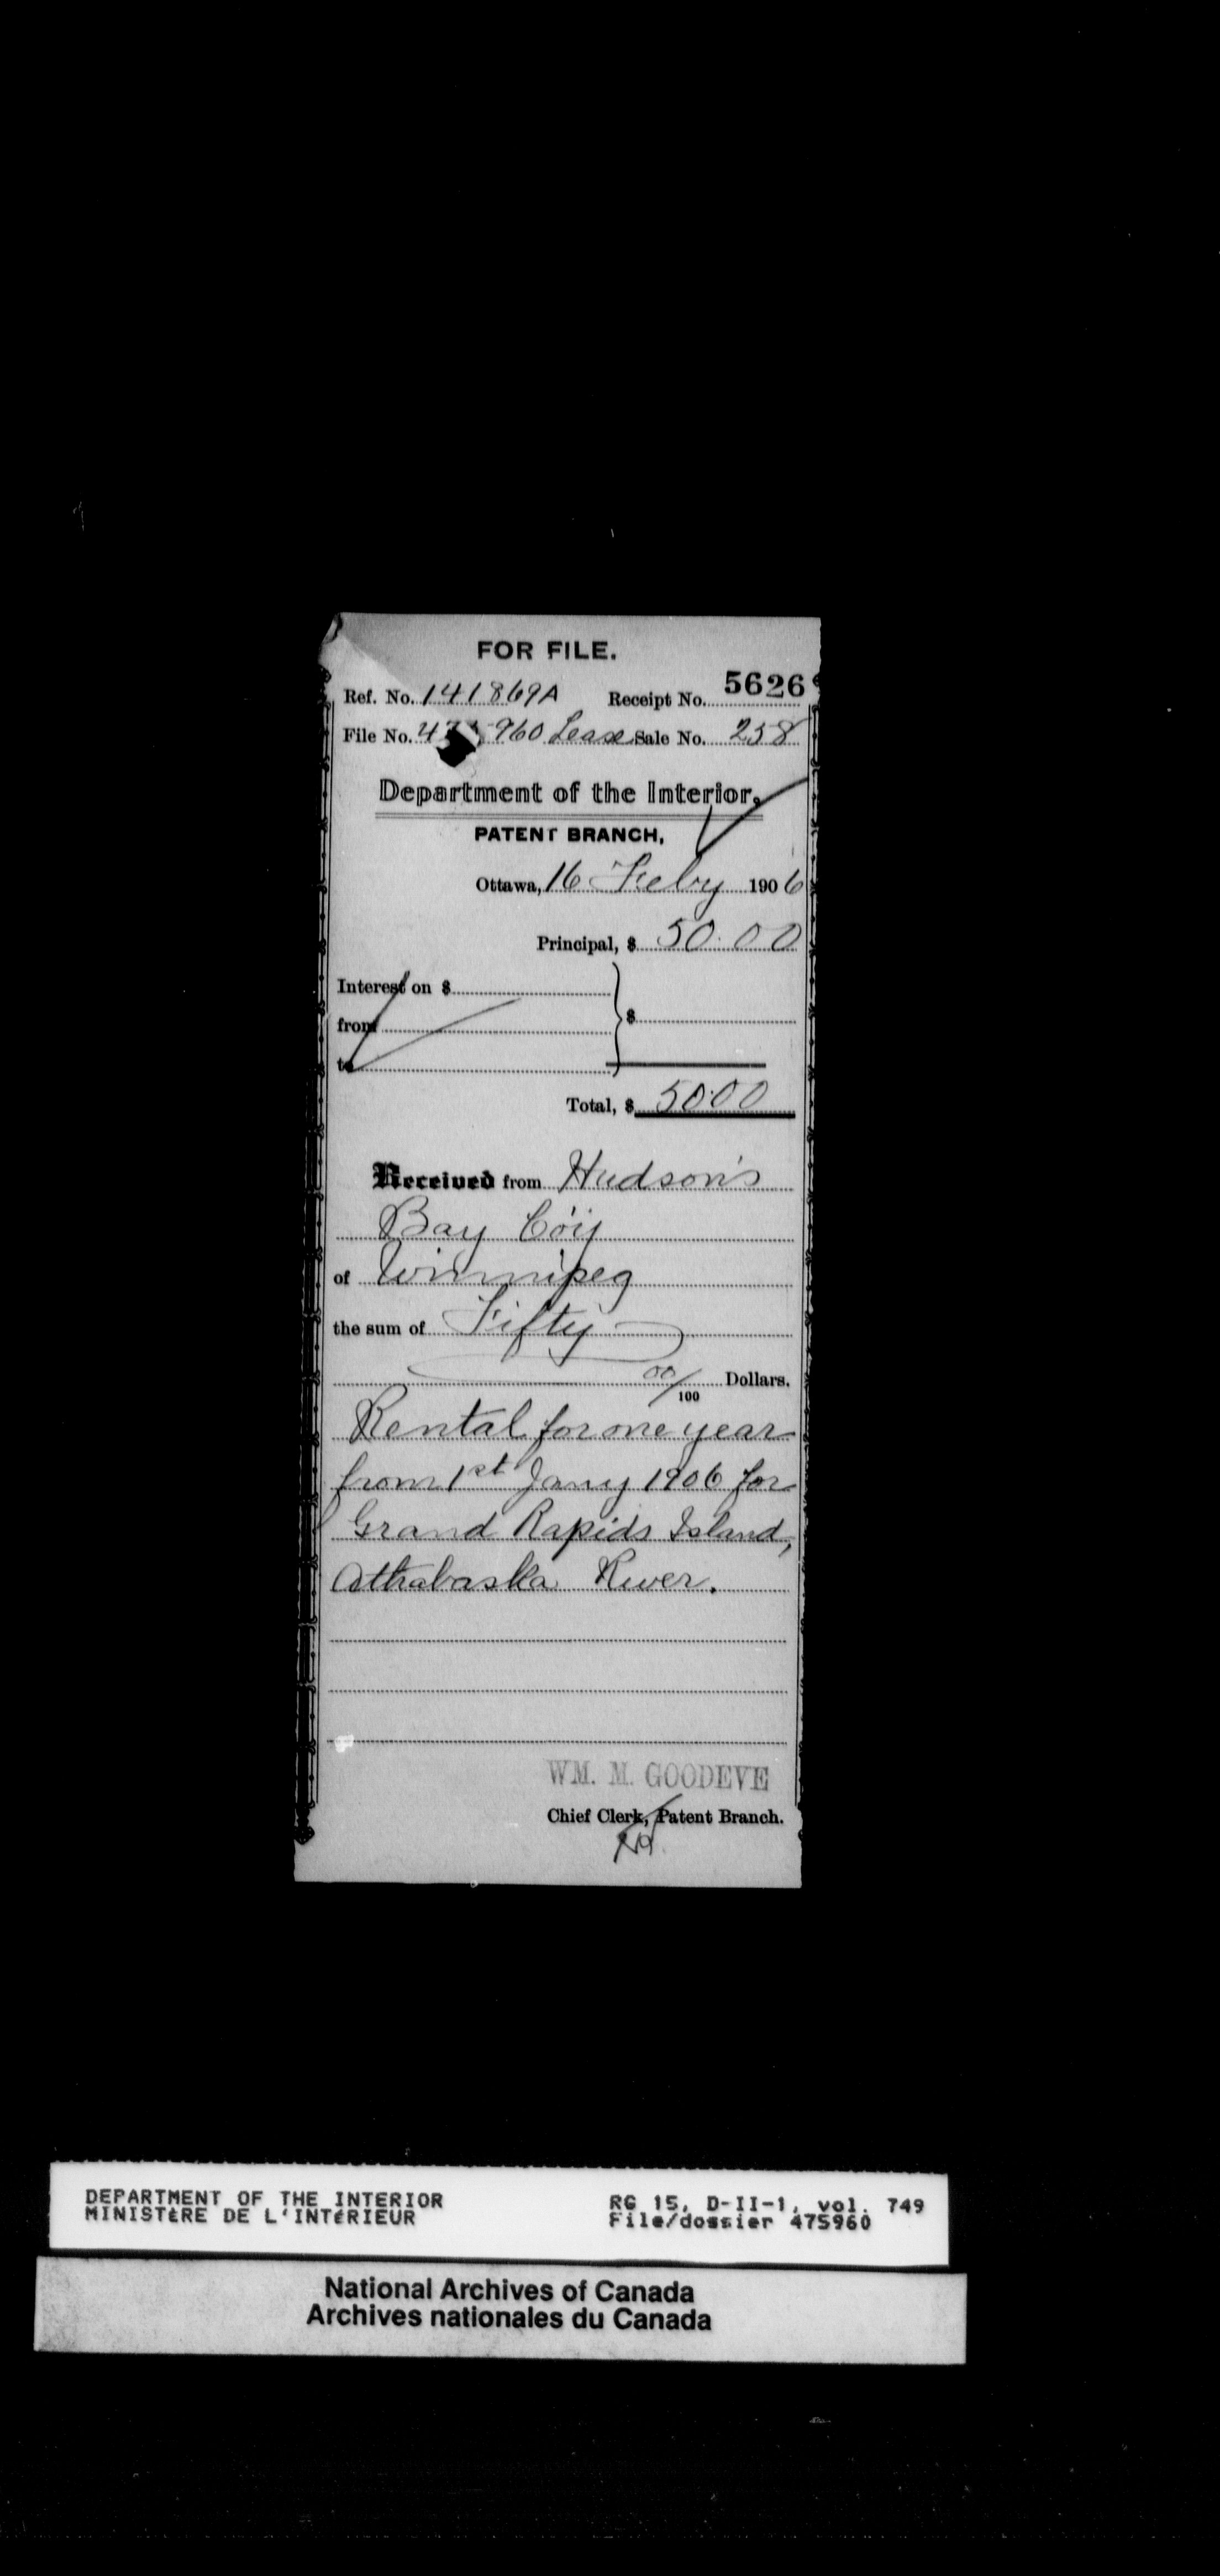 FOR FILE.
Ref. No. 141869A Receipt No. 5626
File No. 475960 Lease Sale No. 258
Department of the Interior,
PATENT BRANCH,
Ottawa, 16 Feby 1906
Principal, $ 50.00
Interest on $
from
to
$
Total, $ 50.00
Received from Hudson's
Bay Co'y
of Winnipeg
the sum of Fifty
00/100 Dollars.
Rental for one year
from 1st Jany 1906 for
Grand Rapids Island,
Athabaska River.
WM. M. GOODEVE
Chief Clerk, Patent Branch.
DEPARTMENT OF THE INTERIOR
MINISTÈRE DE L'INTÉRIEUR
RG 15, D-II-1, vol. 749
File/dossier 475960
National Archives of Canada
Archives nationales du Canada